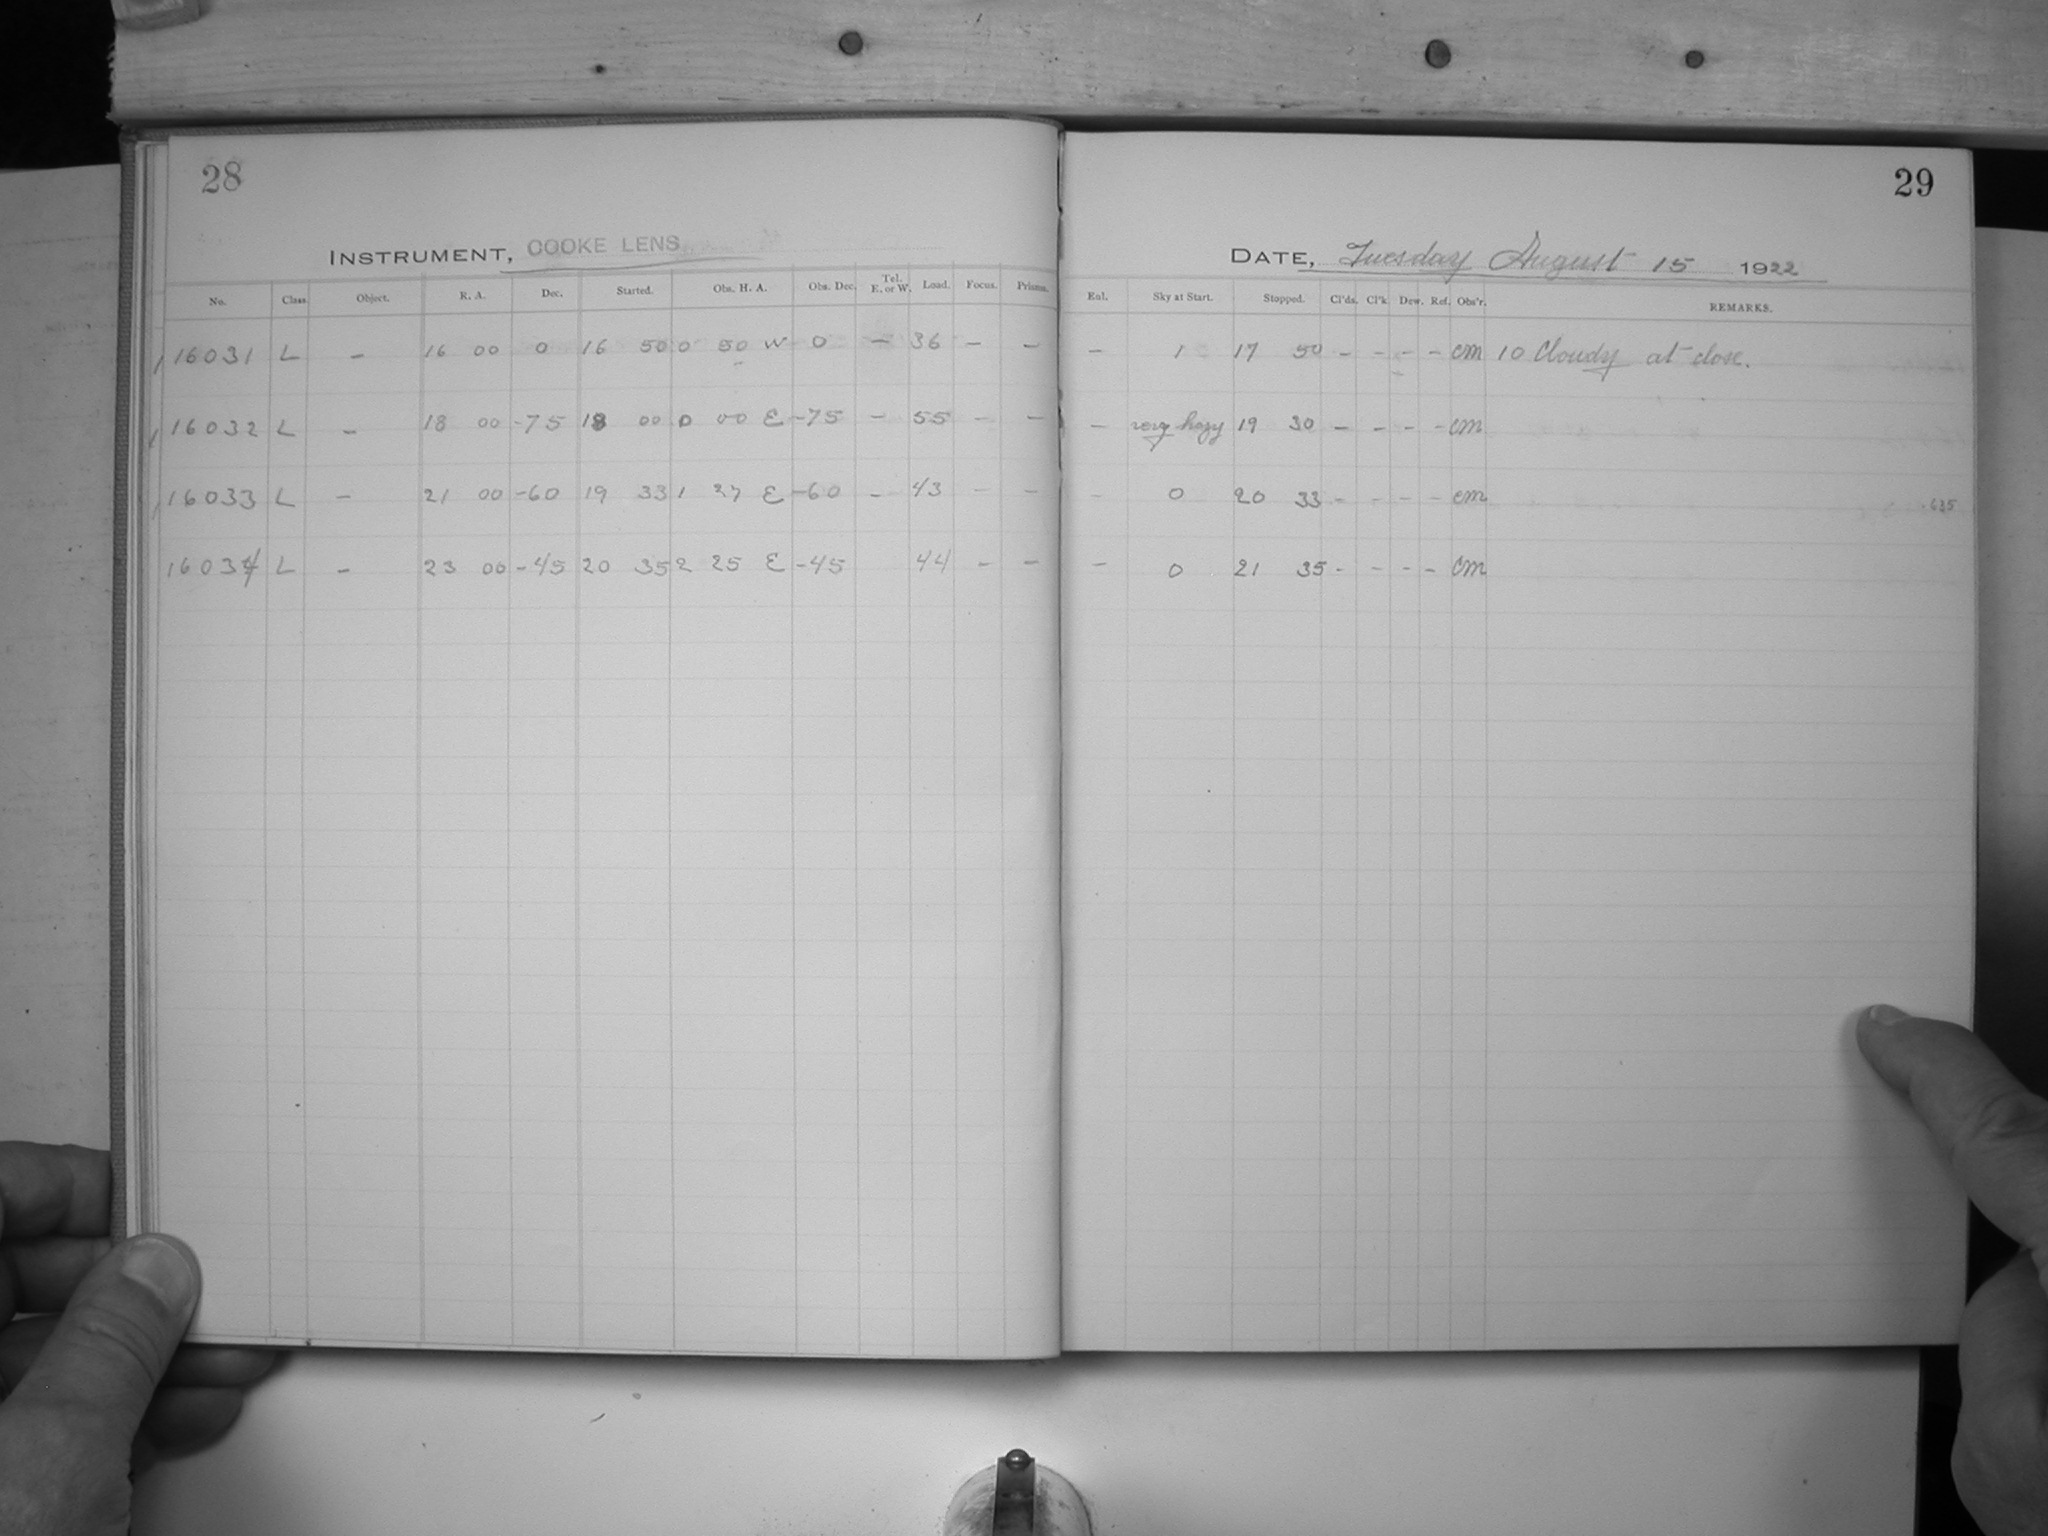 28
INSTRUMENT, COOKE LENS
No. Class. Object. R. A. Dec. Started. Obs. H. A. Obs. Dec. Tel. E. or W. Load. Focus. Prisms.
16031 L – 16 00 0 16 50 0 50 W 0 – 36 – –
16032 L – 18 00 -75 18 00 0 00 E -75 – 55 – –
16033 L – 21 00 -60 19 33 1 27 E -60 – 43 – –
16034 L – 23 00 -45 20 35 2 25 E -45 44 – –
29
DATE, Tuesday August 15 1922
Enl. Sky at Start. Stopped. Cl'ds. Cl'k Dew. Ref. Obs'r. REMARKS.
– 1 17 50 – – – – cm 10 Cloudy at close.
– very hazy 19 30 – – – – cm
– 0 20 33 – – – – cm .635
– 0 21 35 – – – – cm